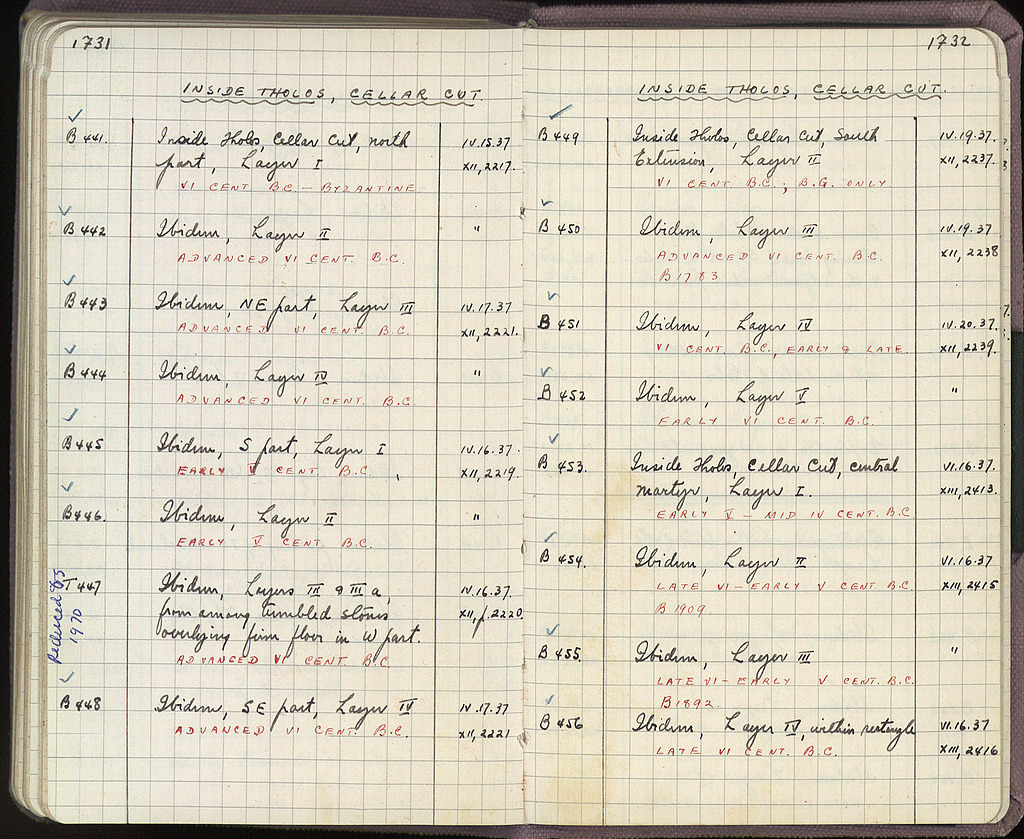 1731
INSIDE THOLOS, CELLAR CUT.
B 441. Inside Tholos, Cellar Cut, north IV.15.37
part, Layer I XII, 2217.
VI CENT B.C – BYZANTINE
B 442 Ibidem, Layer II "
ADVANCED VI CENT. B.C.
B 443 Ibidem, NE part, Layer III IV.17.37
ADVANCED VI CENT. B.C. XII, 2221.
B 444 Ibidem, Layer IV "
ADVANCED VI CENT. B.C.
B 445 Ibidem, S part, Layer I IV.16.37
EARLY V CENT. B.C. XII, 2219.
B 446. Ibidem, Layer II "
EARLY V CENT. B.C.
T 447 Ibidem, Layers III & III a, IV.16.37
from among tumbled stones XII, p. 2220.
overlying firm floor in W part.
ADVANCED VI CENT. B.C
Reduced to 5
1970
B 448 Ibidem, SE part, Layer IV IV.17.37
ADVANCED VI CENT. B.C. XII, 2221
1732
INSIDE THOLOS, CELLAR CUT.
B 449 Inside Tholos, Cellar Cut, South IV.19.37.
Extension, Layer II XII, 2237.
VI CENT B.C.; B.G. ONLY
B 450 Ibidem, Layer III IV.19.37
ADVANCED VI CENT. B.C. XII, 2238
B 1783
B 451 Ibidem, Layer IV IV.20.37.
VI CENT. B.C., EARLY & LATE. XII, 2239.
B 452 Ibidem, Layer V "
EARLY VI CENT. B.C.
B 453. Inside Tholos, Cellar Cut, central VI.16.37.
martyr, Layer I. XIII, 2413.
EARLY V – MID IV CENT. B.C
B 454. Ibidem, Layer II VI.16.37
LATE VI – EARLY V CENT. B.C XIII, 2415
B 1909
B 455. Ibidem, Layer III "
LATE VI – EARLY V CENT. B.C.
B 1892.
B 456 Ibidem, Layer IV, within rectangle VI.16.37
LATE VI CENT. B.C. XIII, 2416